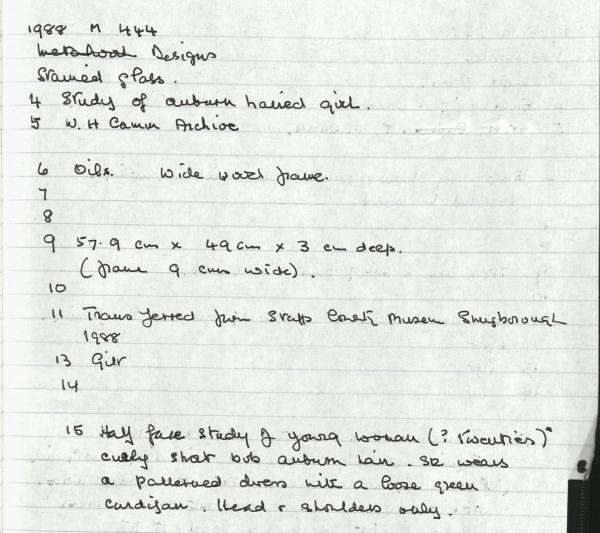 1988 M 444
Designs
Stained glass.
4 Study of auburn haired girl.
5 W. H Camm Archive
6 Oils. Wide wood frame.
7
8
9 57.9 cm x 49 cm x 3 cm deep.
(frame 9 cms wide).
10
11 Transferred from Staffs County Museum Shugborough
1988
13 Gift
14
15 Half face study of young woman (? twenties)
curly short bob auburn hair. She wears
a patterned dress with a loose green
cardigan. Head & shoulders only.